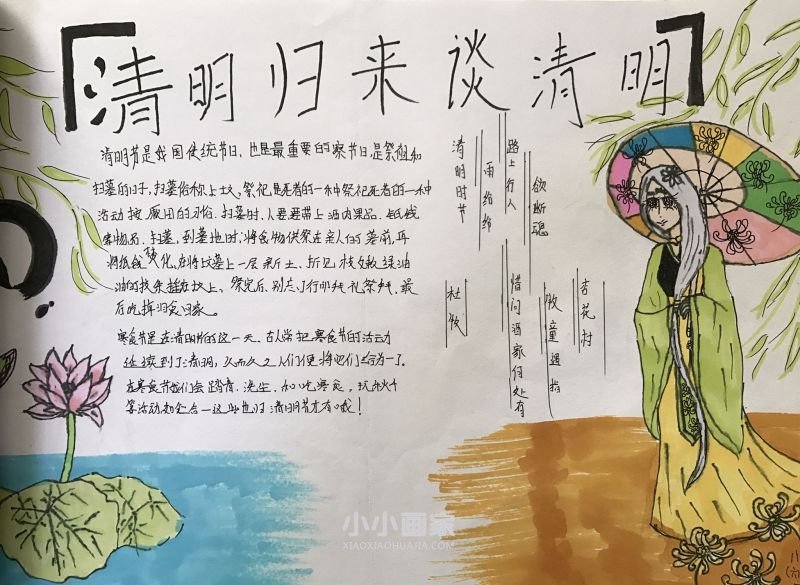 清明归来谈清明
清明节是我国传统节日，也是最重要的祭节日是祭祖和
扫墓的日子，扫墓俗称上坟，祭祀死者的一种祭祀死者的一种
活动 按 习俗，扫墓时，人要携带上酒肉果品，纸钱
等物品，扫墓，到墓地时；将食物供祭在亲人的墓前，再
将纸钱焚化，在将坟墓上一层新土，折几枝嫩绿油
油的枝条插在坟上，祭完后，别忘了行叩拜礼祭拜，最
后吃掉酒食回家。
寒食节是在清明节的这一天，古人常把寒食节的活动
延续到了清明，久而久之人们便将他们合为一了。
在寒食节我们会踏青、洗 、和吃寒食，玩秋千
等活动如处合一这些也归清明节才有哦！
清明时节
雨纷纷
路上行人
欲断魂
杜牧
借问酒家何处有
牧童遥指
杏花村
小小画家
XIAOXIAOHUAJIA.COM